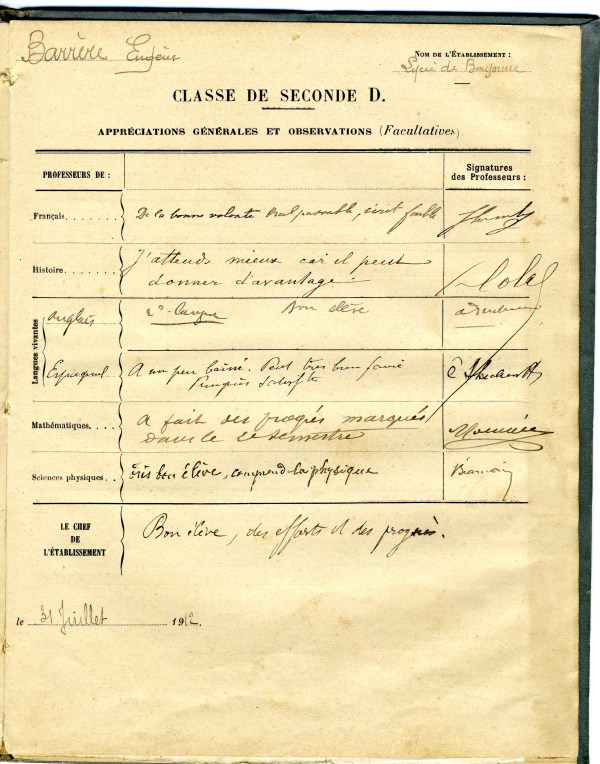 Barrère Eugène
NOM DE L'ÉTABLISSEMENT :
Lycée de Bayonne
CLASSE DE SECONDE D.
APPRÉCIATIONS GÉNÉRALES ET OBSERVATIONS (Facultatives)
PROFESSEURS DE :
Signatures
des Professeurs :
Français. . . . . . . De la bonne volonté Oral passable, écrit faible
Histoire. . . . . . . J'attends mieux car il peut
donner d'avantage.
Langues vivantes
Anglais 2e Langue Bon élève
Espagnol A un peu baissé. Peut très bien faire
Mathématiques. . . . A fait des progrès marqués
dans le 2e semestre
Sciences physiques. . Très bon élève, comprend la physique
LE CHEF
DE
L'ÉTABLISSEMENT
Bon élève, des efforts et des progrès.
le 31 Juillet 1912.